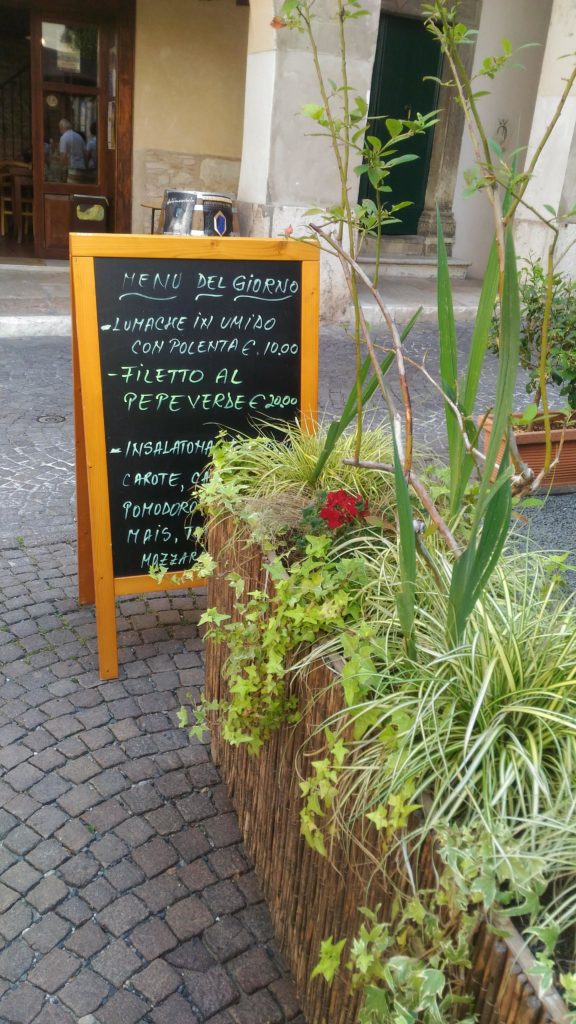 MENÙ DEL GIORNO
-LUMACHE IN UMIDO
CON POLENTA €. 10.00
-FILETTO AL
PEPEVERDE € 20.00
-INSALATOMA
CAROTE,
POMODORO
MAIS,
MOZZAR